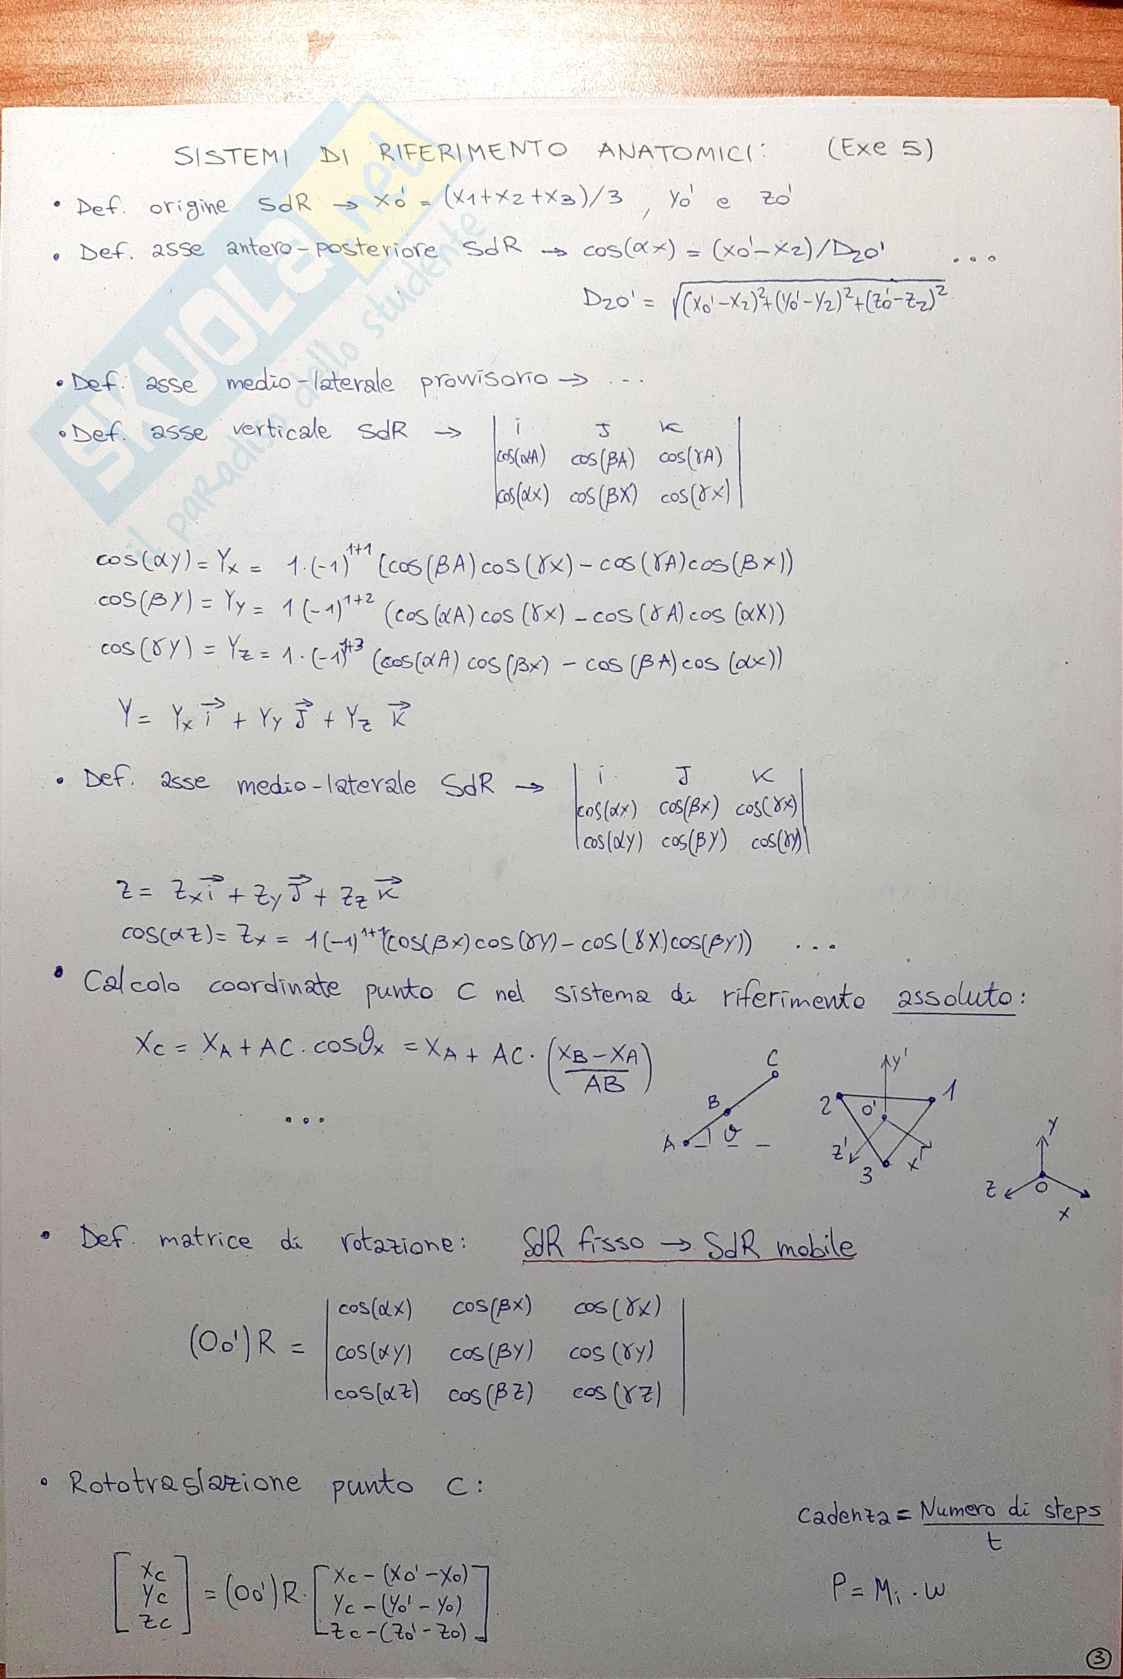 SISTEMI DI RIFERIMENTO ANATOMICI: (Exe 5)
• Def. origine SdR → Xo' = (X1+X2+X3)/3 , Yo' e Zo'
• Def. asse antero-posteriore SdR → cos(αx) = (Xo'-X2)/D2o' ...
D2o' = √(Xo'-X2)²+(Yo'-Y2)²+(Zo'-Z2)²
• Def. asse medio-laterale provvisorio → ...
• Def. asse verticale SdR → | i J K |
| cos(αA) cos(βA) cos(γA) |
| cos(αX) cos(βX) cos(γX) |
cos(αY) = Yx = 1·(-1)¹⁺¹ (cos(βA)cos(γX) - cos(γA)cos(βX))
cos(βY) = Yy = 1(-1)¹⁺² (cos(αA)cos(γX) - cos(γA)cos(αX))
cos(γY) = Yz = 1·(-1)¹⁺³ (cos(αA)cos(βX) - cos(βA)cos(αX))
Y = Yx i + Yy J + Yz K
• Def. asse medio-laterale SdR → | i J K |
| cos(αX) cos(βX) cos(γX) |
| cos(αY) cos(βY) cos(γY) |
Z = Zx i + Zy J + Zz K
cos(αZ) = Zx = 1(-1)¹⁺¹(cos(βX)cos(γY) - cos(γX)cos(βY)) ...
• Calcolo coordinate punto C nel sistema di riferimento assoluto:
Xc = XA + AC · cosϑx = XA + AC · (XB - XA / AB)
...
A B C ϑ
1 2 3 O' Y' Z' X'
Y Z O X
• Def. matrice di rotazione: SdR fisso → SdR mobile
(Oo')R = | cos(αX) cos(βX) cos(γX) |
| cos(αY) cos(βY) cos(γY) |
| cos(αZ) cos(βZ) cos(γZ) |
• Rototraslazione punto C:
cadenza = Numero di steps / t
[ Xc ] = (Oo')R · [ Xc - (Xo' - Xo) ]
[ Yc ] [ Yc - (Yo' - Yo) ]
[ Zc ] [ Zc - (Zo' - Zo) ]
P = Mi · w
3
SKUOLA.net
il paradiso dello studente